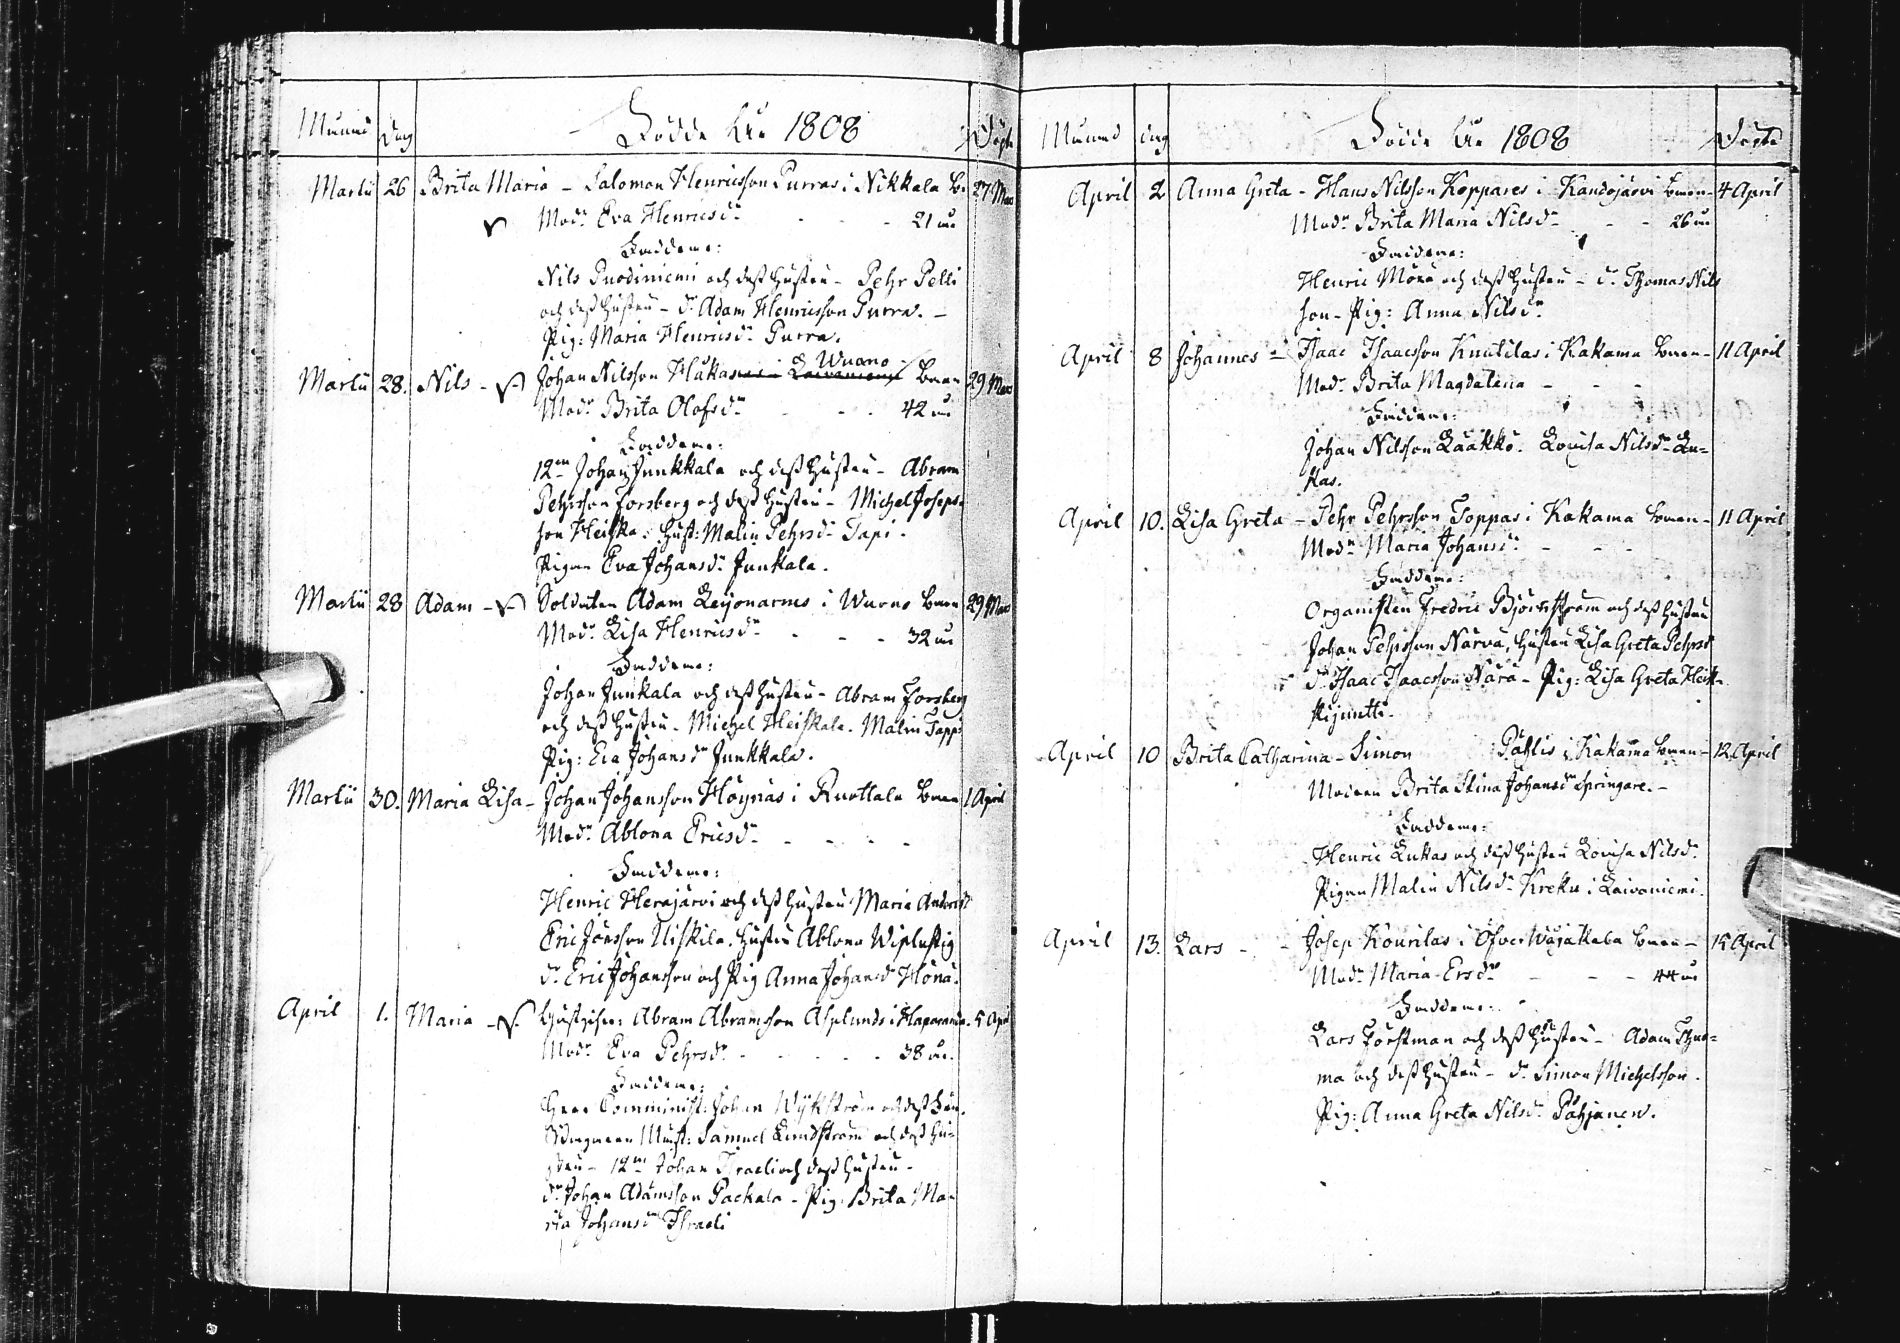 Månad Dag Födde År 1808 Döpte
Martii 26 Brita Maria – Salomon Henricsson Purras i Nikkala bn 27 Mars
Modn Eva Henricsdr - - - 21 år
Faddrene:
Nils Puodiniemi och dess hustru – Pehr Pelli
och dess hustru – dr. Adam Henricsson Purra. –
Pig: Maria Henricsdr Purra.
Wuono
Martii 28. Nils – Johan Nilsson Hukas i Laivaniemi barn 29 Mars
Modr Brita Olofsdr - - - 42 år
Faddrene:
12mn Johan Junkkala och dess hustru – Abram
Pehrsson Forsberg och dess hustru – Michel Josephs-
son Heiska. hust: Malin Pehrsdr Tapi.
Pigan Eva Johansdr Junkala.
Martii 28 Adam – Soldaten Adam Leijonarms i Wuono barn 29 Mars
Modr Lisa Henricsdr - - - 32 år
Faddrene:
Johan Junkala och dess hustru – Abram Forsberg
och dess hustru. Michel Heiskala. Malin Tapp
Pig: Eva Johansdr Junkkala.
Martii 30. Maria Lisa – Johan Johansson Höynäs i Ruottala barn 1 April
Modr Ablona Ericsdr - - - -
Faddrene:
Henric Herajärvi och dess hustru Maria Andersdr
Eric Jönsson Uiskila. hustru Ablona Wiplustig
dr. Eric Johansson och Pig Anna Johansdr Höna.
April 1. Maria – Abram Abramsson Asplunds i Haparanda. 5 April
Modr Eva Pehrsdr - - - - 38 år.
Faddrene:
Herr Comminist: Johan Wijkström och dess
Must: Samuel Lundström och dess hu-
stru – 12mn Johan Israeli och dess hustru –
dr. Johan Adamsson Packala – Pig: Brita Ma-
ria Johansdr Israeli
Månad dag Födde År 1808 Döpte
April 2 Anna Greta – Hans Nilsson Koppares i Kandojärvi barn – 4 April
Modr Brita Maria Nilsdr - - 26 år
Faddrene:
Henric Mörä och dess hustru – dr. Thomas Nils
son – Pig: Anna Nilsdr
April 8 Johannes – Isaac Isaacsson Knutilas i Kakama barn – 11 April
Modr Brita Magdalena - - -
Faddrene:
Johan Nilsson Laakko. Lovisa Nilsdr Lu-
kas.
April 10. Lisa Greta – Pehr Pehrsson Toppas i Kakama barn – 11 April
Modr Maria Johansdr - - -
Faddrene:
Organisten Fredric Björnström och dess hustru
Johan Pehrsson Närvä, hustru Lisa Greta Pehrsdr
dr. Isaac Isaacsson Närä – Pig: Lisa Greta Heik-
April 10 Brita Catharina – Simon Påhlis i Kakama barn – 12 April
Modren Brita Stina Johansdr Springare. –
Faddrene:
Henric Lukas och dess hustru Lovisa Nilsdr
Pigan Malin Nilsdr Kreku i Laivaniemi.
April 13. Lars - - Josep Kourilas i Öfver Wojakala barn – 15 April
Modr Maria Ersdr - - - 44 år
Faddrene:
Lars Forstman och dess hustru – Adam Thuo-
ma och dess hustru – dr. Simon Michelsson.
Pig: Anna Greta Nilsdr Påhjanen.